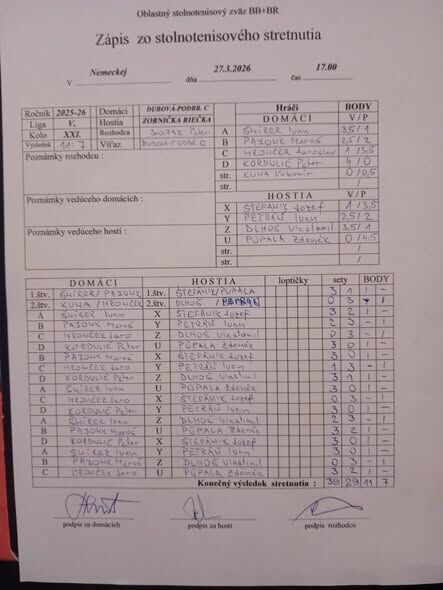 Oblastný stolnotenisový zväz BB+BR
Zápis zo stolnotenisového stretnutia
V Nemeckej dňa 27.3.2026 čas 17.00
Ročník 2025-26 Domáci DUBOVÁ-PODBR. C
Liga V. Hostia ZORNIČKA RIEČKA
Kolo XXI. Rozhodca Peter
Výsledok 11:7 Víťaz DUBOVÁ-PODBR C
Poznámky rozhodcu :
Poznámky vedúceho domácich :
Poznámky vedúceho hostí :
Hráči BODY
DOMÁCI V / P
A ŠNÍRER Ivan 3,5/1
B PAJONK Maroš 2,5/2
C HRONČEK Jaroslav 1/3,5
D KORDULIČ Peter 4/0
str. KUNA Ľubomír 0/0,5
str. /
HOSTIA V / P
X ŠTEFÁNIK Jozef 1/3,5
Y PETRÁŇ Ivan 2,5/2
Z DLHOŠ Vlastimil 3,5/1
U PÚPALA Zdeněk 0/4,5
str. /
str. /
DOMÁCI HOSTIA loptičky sety BODY
1.štv. ŠNÍRER / PAJONK 1.štv. ŠTEFÁNIK / PÚPALA 3 1 1 -
2.štv. KUNA / HRONČEK 2.štv. DLHOŠ / PETRÁŇ 0 3 - 1
A ŠNÍRER Ivan X ŠTEFÁNIK Jozef 3 2 1 -
B PAJONK Maroš Y PETRÁŇ Ivan 2 3 - 1
C HRONČEK Jaro Z DLHOŠ Vlastimil 0 3 - 1
D KORDULIČ Peter U PÚPALA Zdeněk 3 0 1 -
B PAJONK Maroš X ŠTEFÁNIK Jozef 3 0 1 -
C HRONČEK Jaro Y PETRÁŇ Ivan 1 3 - 1
D KORDULIČ Peter Z DLHOŠ Vlastimil 3 1 1 -
A ŠNÍRER Ivan U PÚPALA Zdeněk 3 0 1 -
C HRONČEK Jaro X ŠTEFÁNIK Jozef 0 3 - 1
D KORDULIČ Peter Y PETRÁŇ Ivan 3 0 1 -
A ŠNÍRER Ivan Z DLHOŠ Vlastimil 2 3 - 1
B PAJONK Maroš U PÚPALA Zdeněk 3 2 1 -
D KORDULIČ Peter X ŠTEFÁNIK Jozef 3 0 1 -
A ŠNÍRER Ivan Y PETRÁŇ Ivan 3 0 1 -
B PAJONK Maroš Z DLHOŠ Vlastimil 0 3 - 1
C HRONČEK Jaro U PÚPALA Zdeněk 3 2 1 -
Konečný výsledok stretnutia : 38 29 11 7
podpis za domácich podpis za hostí podpis rozhodcu